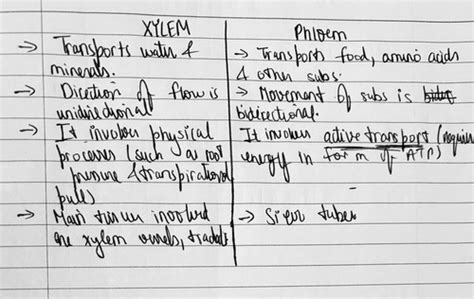 XYLEM
→ Transports water &
minerals.
→ Direction of flow is
unidirectional
→ It involves physical
processes (such as root
pressure & transpirational
pull)
→ Main tissues involved
are xylem vessels,
Phloem
→ Transports food, amino acids
& other subs.
→ Movement of subs is
bidirectional.
It involves active transport (requires
energy in form of ATP)
→ Sieve tubes